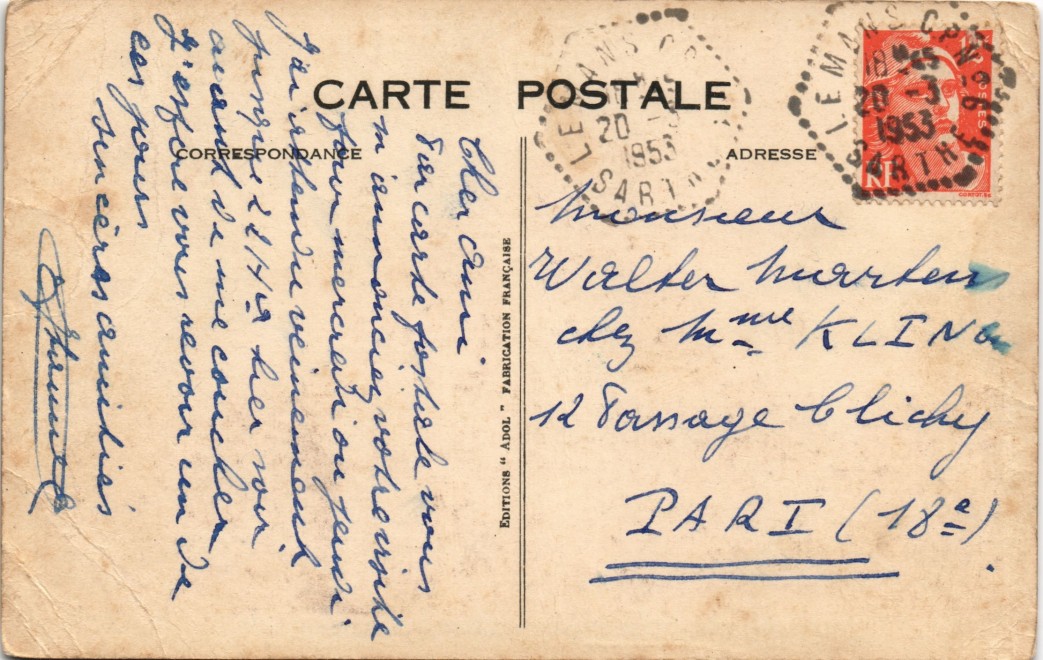 CARTE POSTALE
CORRESPONDANCE
ADRESSE
Cher ami
Par carte postale vous
m'annonciez votre visite
pour mercredi ou jeudi.
J'ai attendu vainement
jusqu'à 22 h hier soir
avant de me coucher
J'espère vous revoir un de
ces jours
Sincères amitiés
EDITIONS " ADOL " FABRICATION FRANÇAISE
LE MANS CP N° 6
18 H 45
20 - 3
1953
SARTHE
LE MANS CP
20 -
1953
SARTHE
POSTES
Monsieur
Walter Martens
chez Mme KLING
12 Passage Clichy
PARI (18e).